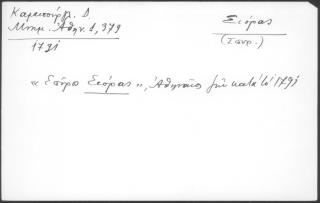 Καμπούρογλ. Δ.
Μνημ. Ἀθην. 1, 379
1791
Σκόρας
(Σπυρ.)
« Σπύρο Σκόρας », Ἀθηναῖος ζῆ κατὰ τὸ 1791